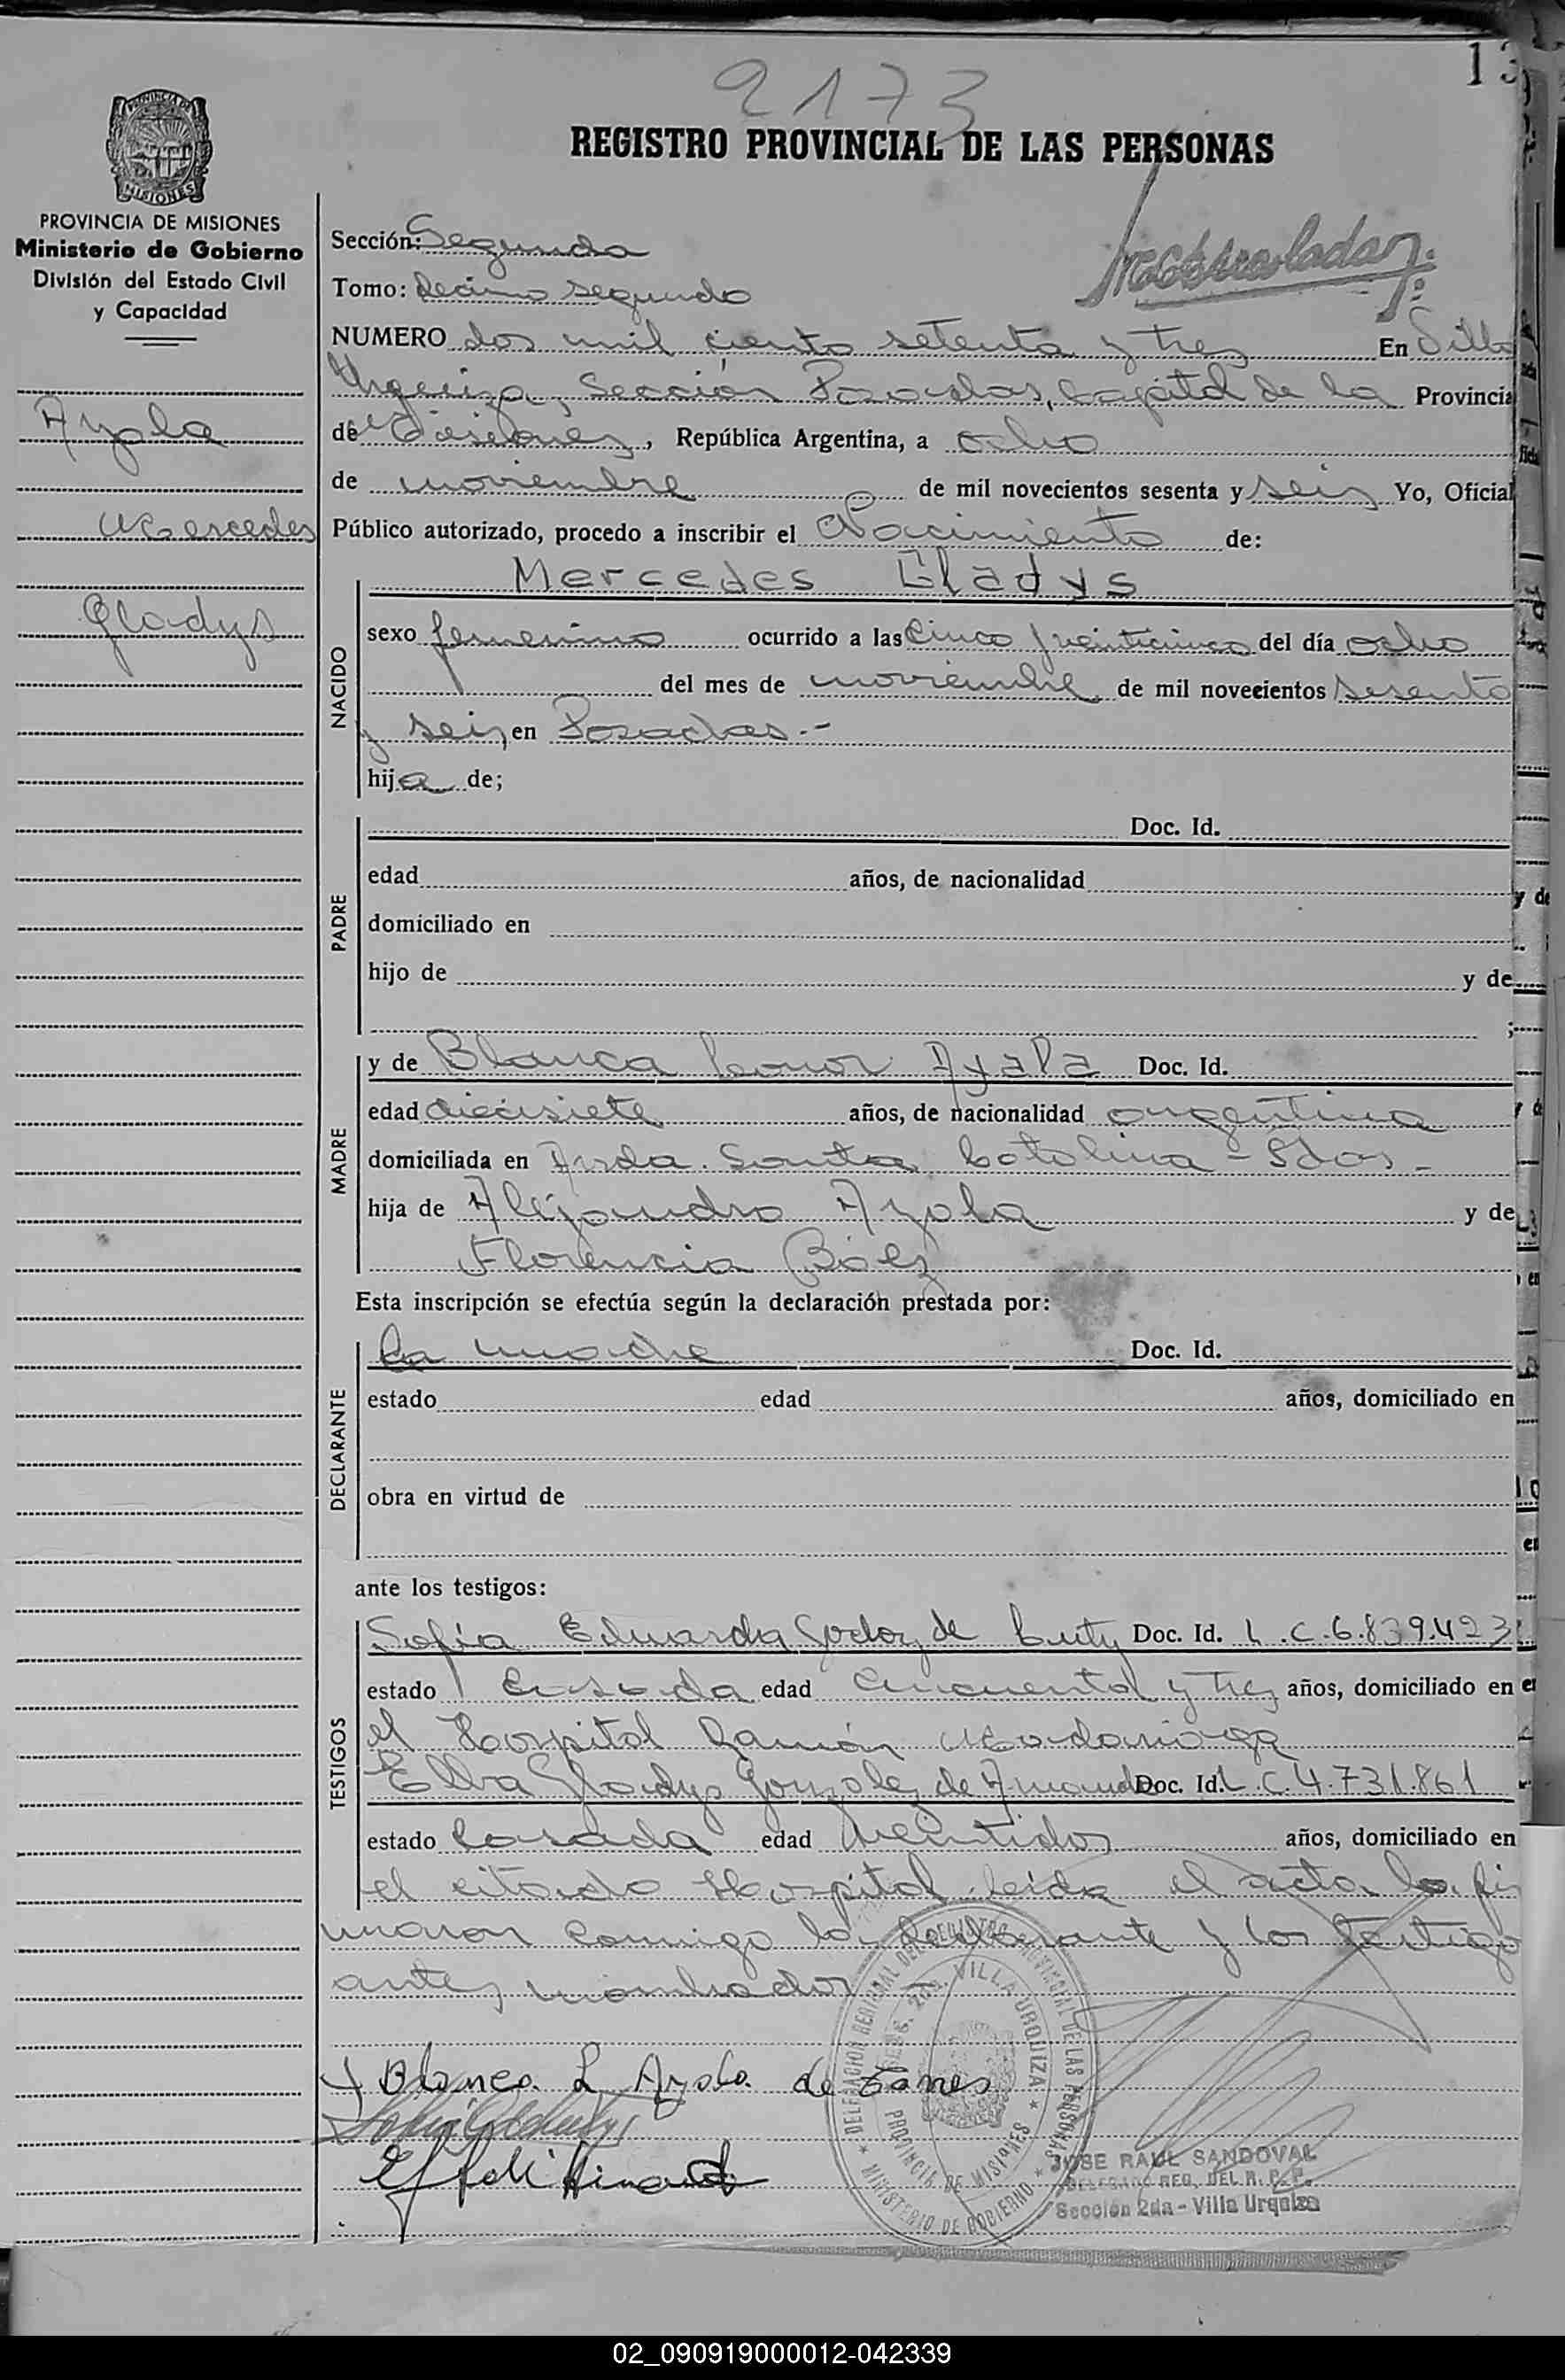 13
2173
REGISTRO PROVINCIAL DE LAS PERSONAS
PROVINCIA DE MISIONES
Ministerio de Gobierno
División del Estado Civil
y Capacidad
Ayala
Mercedes
Gladys
Matriculada
Sección: Segunda
Tomo: Décimo segundo
NUMERO dos mil ciento setenta y tres En Villa
Urquiza, Sección Posadas, Capital de la Provincia
de Misiones, República Argentina, a ocho
de noviembre de mil novecientos sesenta y seis Yo, Oficial
Público autorizado, procedo a inscribir el Nacimiento de:
Mercedes Gladys
NACIDO
sexo femenino ocurrido a las cinco y veinticinco del día ocho
del mes de noviembre de mil novecientos sesenta
y seis, en Posadas.-
hija de;
PADRE
Doc. Id.
edad años, de nacionalidad
domiciliado en
hijo de y de
;
MADRE
y de Blanca Leonor Ayala Doc. Id.
edad diecisiete años, de nacionalidad argentina
domiciliada en Avda. Santa Catalina - Pdas -
hija de Alejandro Ayala y de
Florencia Báez
Esta inscripción se efectúa según la declaración prestada por:
DECLARANTE
La madre Doc. Id.
estado edad años, domiciliado en
obra en virtud de
ante los testigos:
TESTIGOS
Sofía Eduarda Godoy de Doc. Id. L.C.6.839.423
estado Casada edad Cincuenta y tres años, domiciliado en
el Hospital Ramón Madariaga
Elba Gladys Gonzalez de Doc. Id. L.C.4.731.861
estado Casada edad veintidos años, domiciliado en
el citado Hospital. leída el acta la fir
maron conmigo la declarante y los testigo
antes nombrados
Blanca L Ayala de
DELEGACION REGIONAL DEL REGISTRO PROVINCIAL DE LAS PERSONAS
MINISTERIO DE GOBIERNO
SEC. 2da. VILLA URQUIZA
PROVINCIA DE MISIONES
JOSE RAUL SANDOVAL
DELEGADO REG. DEL R. P. P.
Sección 2da - Villa Urquiza
02_090919000012-042339